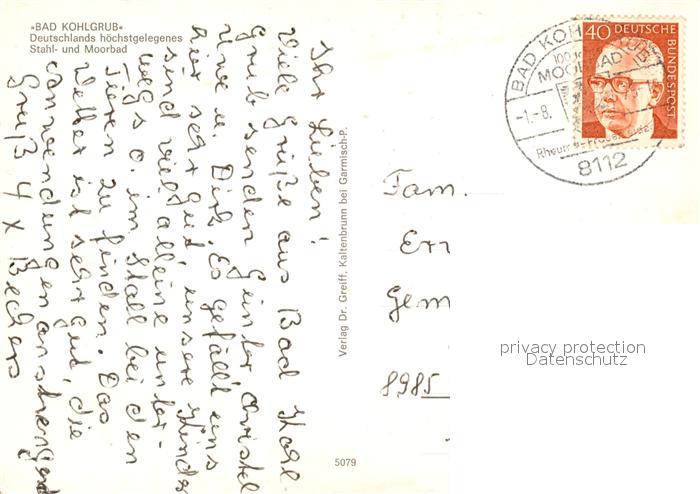 »BAD KOHLGRUB«
Deutschlands höchstgelegenes
Stahl- und Moorbad
Ihr Lieben!
Viele Grüße aus Bad Kohl-
grub senden Günter, Christel
Uwe u. Dirk. Es gefällt uns
hier sehr gut, unsere Kinder
sind viel alleine unter-
wegs o. im Stall bei den
Tieren zu finden. Das
Wetter ist sehr gut, die
Anwendungen anstrengend
Gruß 4 x Beckers
Verlag Dr. Greiff, Kaltenbrunn bei Garmisch-P.
5079
40 DEUTSCHE BUNDESPOST
BAD KOHLGRUB
MOORBAD
-1.-8.
8112
Fam.
Err
Gem
8985
privacy protection
Datenschutz